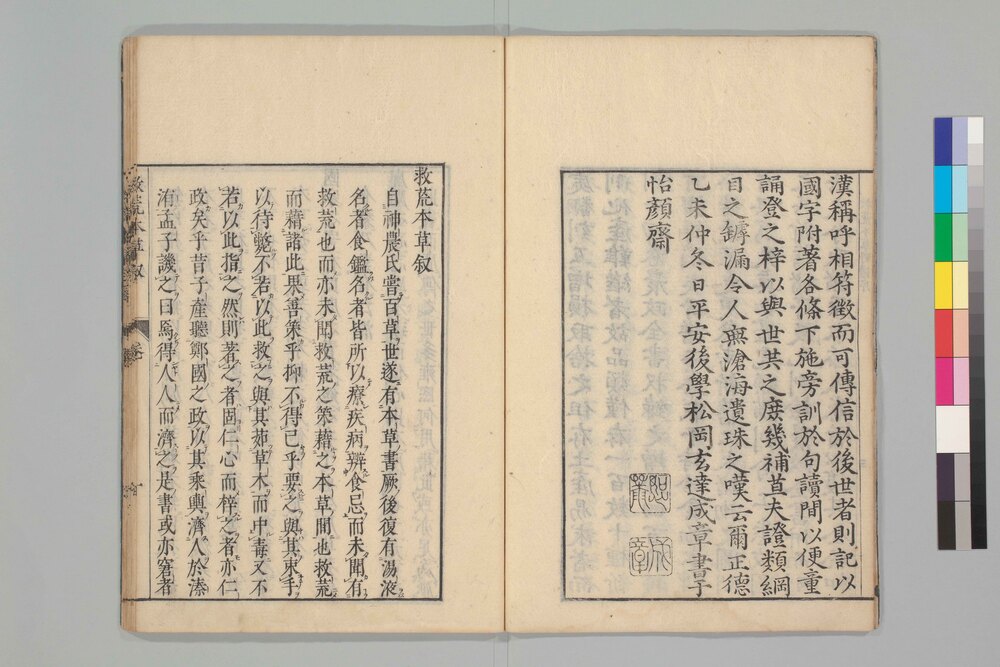 漢稱呼相符徵而可傳信於後世者則記以
國字附著各條下施旁訓於句讀間以便童
誦登之梓以與世共之庶幾補苴夫證類綱
目之罅漏令人無滄海遺珠之嘆云爾正德
乙未仲冬日平安後學松岡玄達成章書于
怡顏齋
救荒本草叙
自神農氏嘗百草世遂有本草書厥後復有湯液
名者食鑑名者皆所以療疾病辨食忌而未聞有
救荒也而亦未聞救荒之策藉之本草間也救荒
而藉諸此果善策乎抑不得已乎要之與其束手
以待斃不若以此救之與其茹草木而中毒又不
若以此指之然則著之者固仁心而梓之者亦仁
政矣乎昔子產聽鄭國之政以其乘輿濟人於溱
洧孟子譏之曰焉得人人而濟之是書或亦窮者
救荒本草 叙